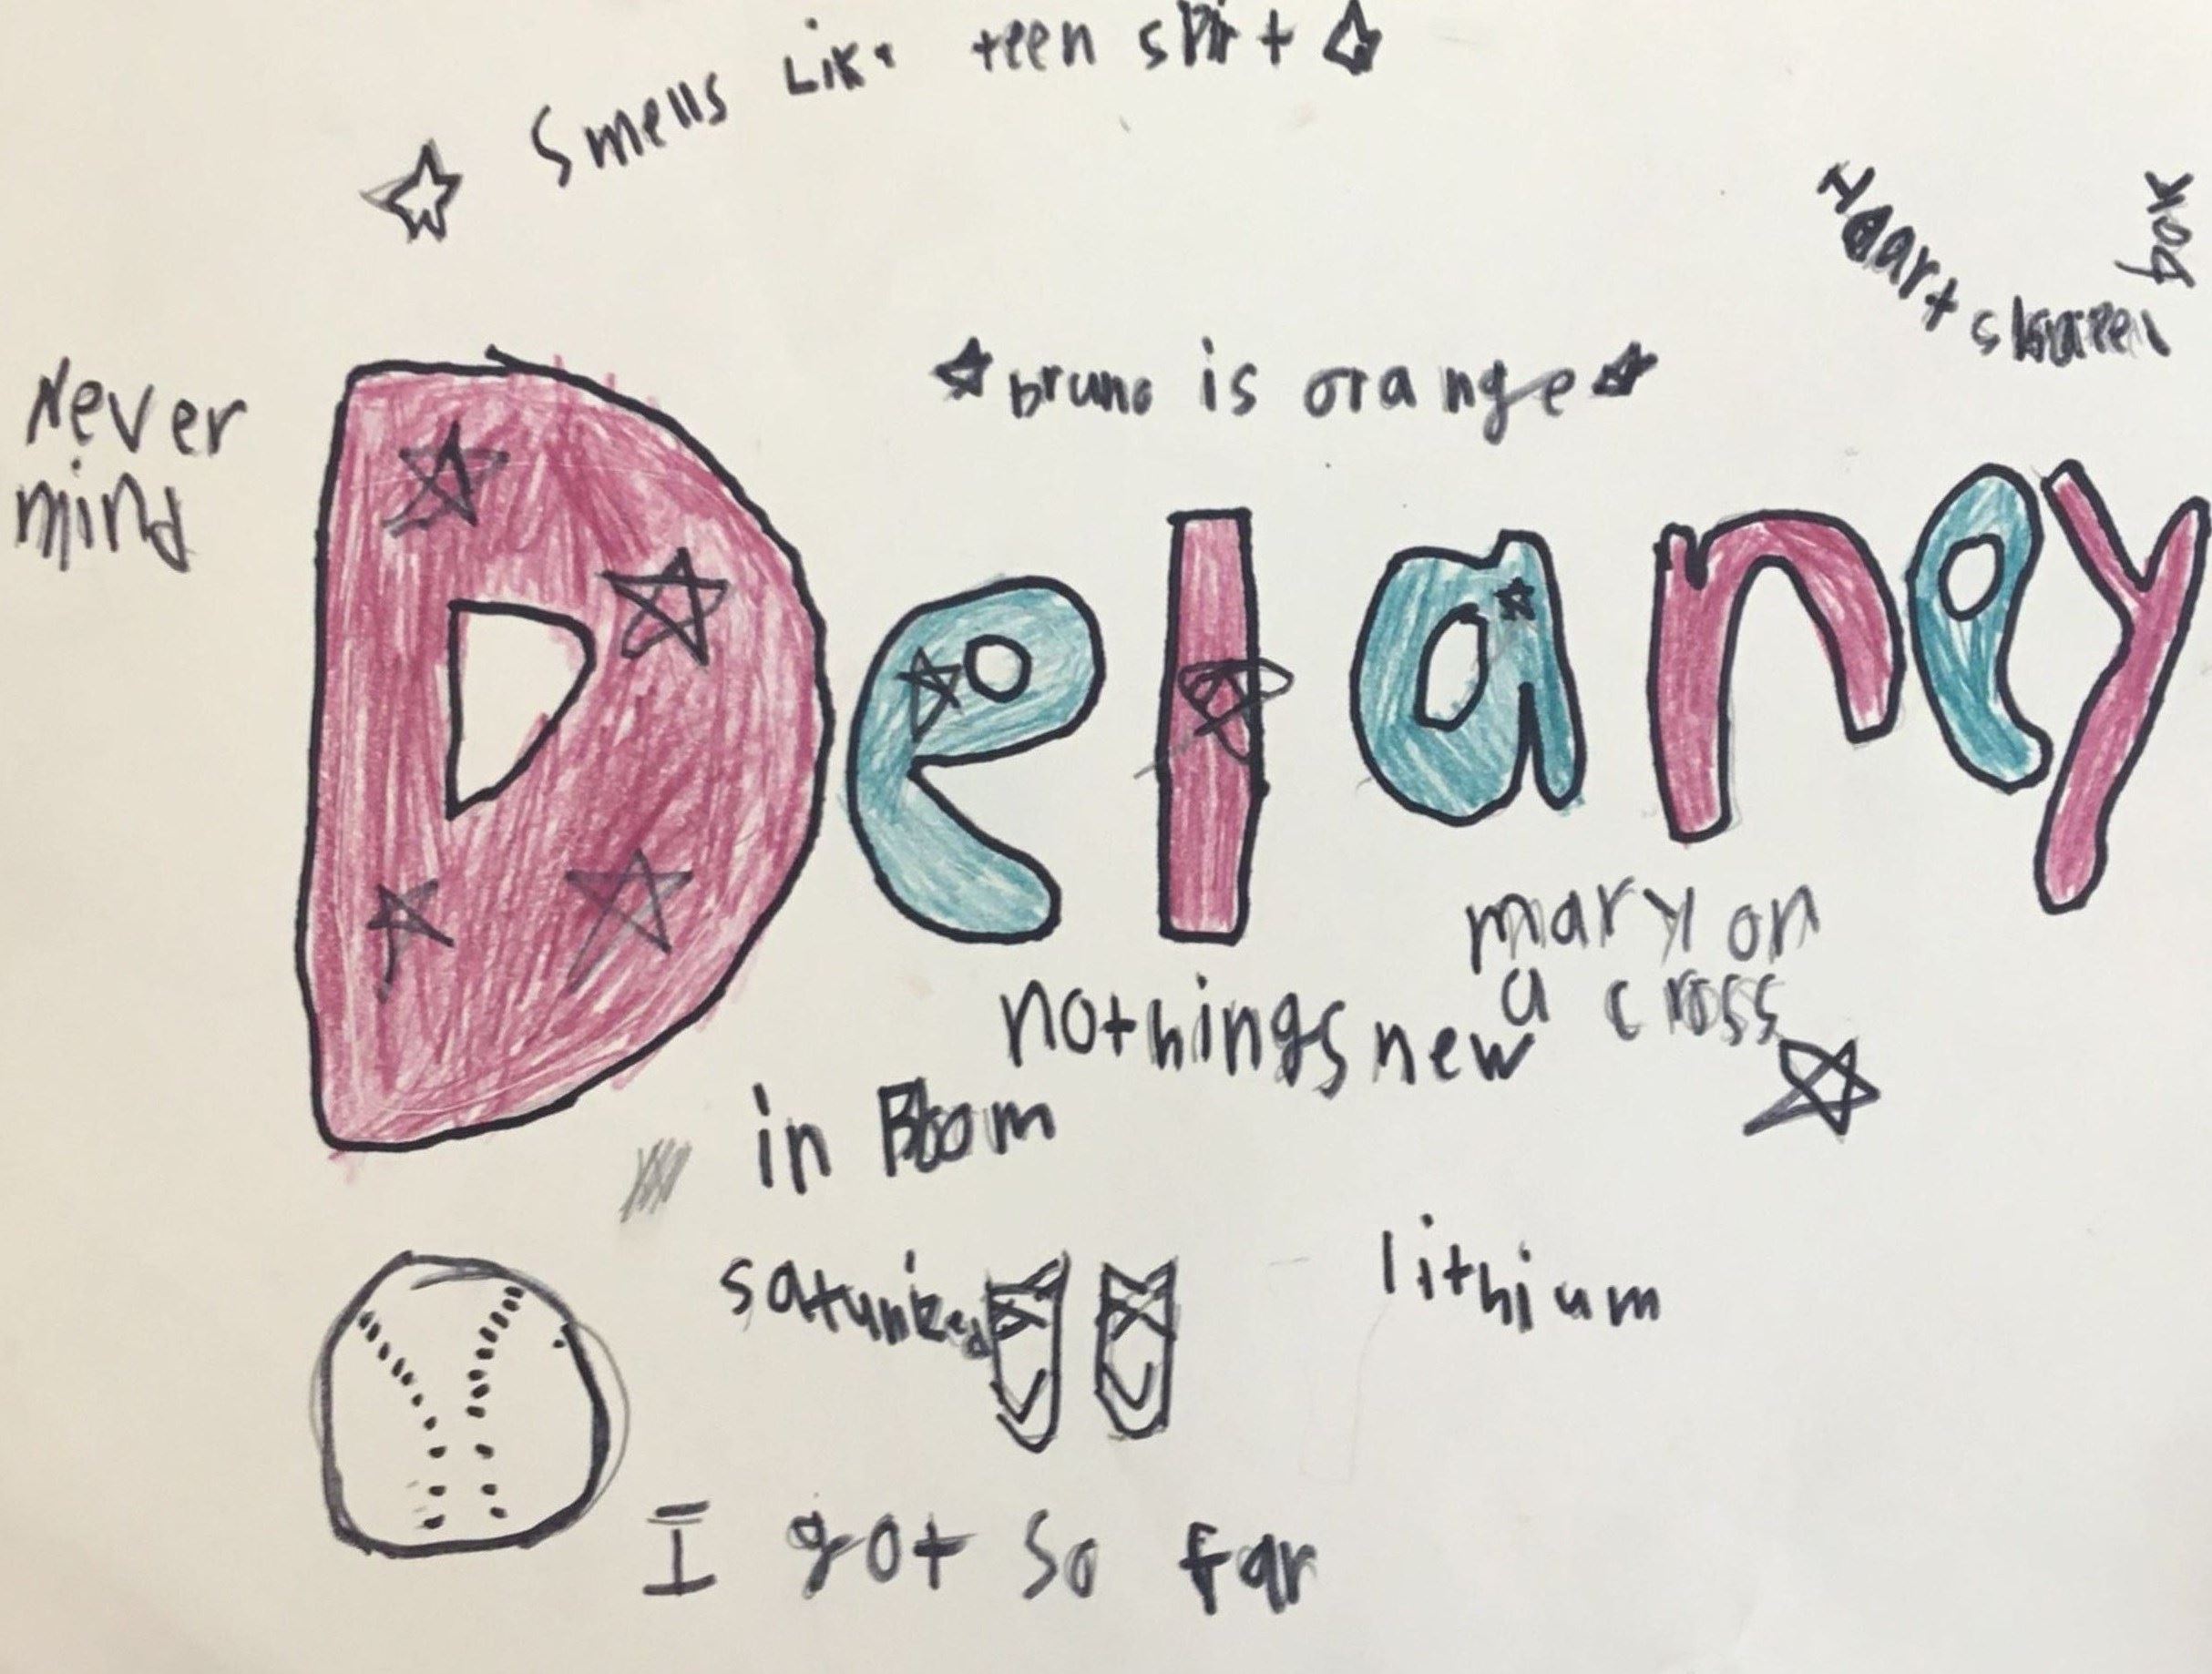 smells Like teen spirit
Heart shaped box
Never
mind
bruno is orange
Delaney
mary on
a cross
nothings new
in Bloom
lithium
I got so far